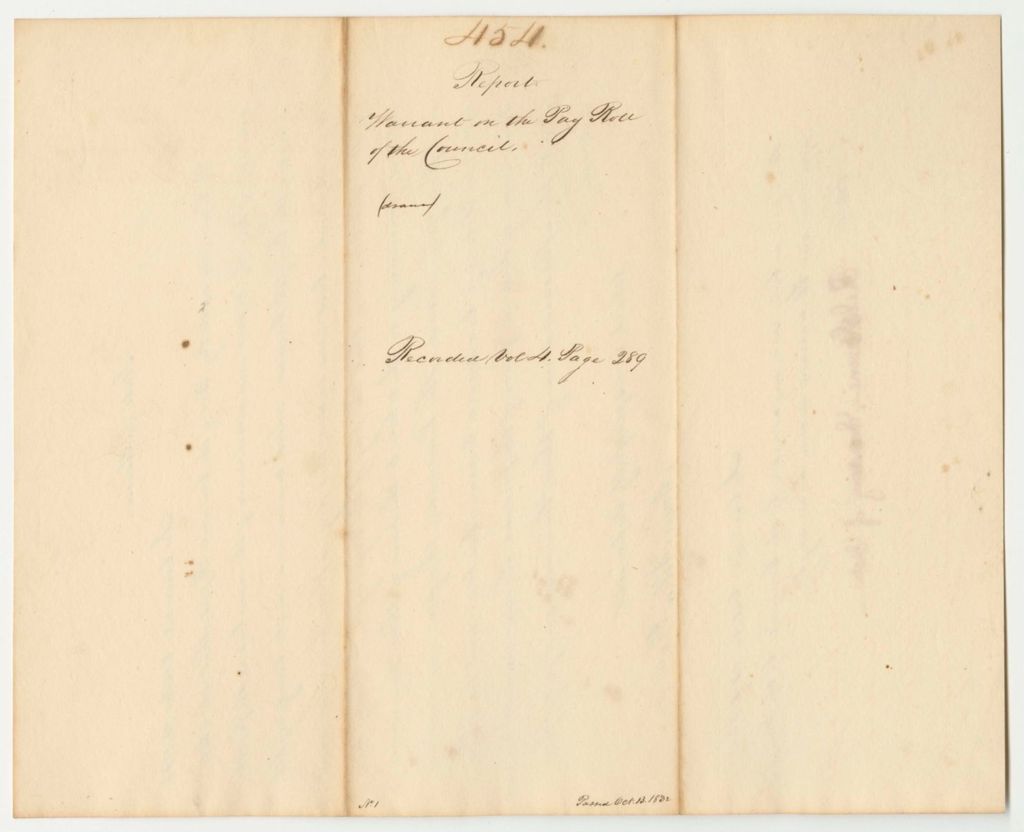 454.
Report
Warrant on the Pay Roll
of the Council.
(drawn)
Recorded Vol 4. Page 289
No 1
Passed Oct. 13. 1832